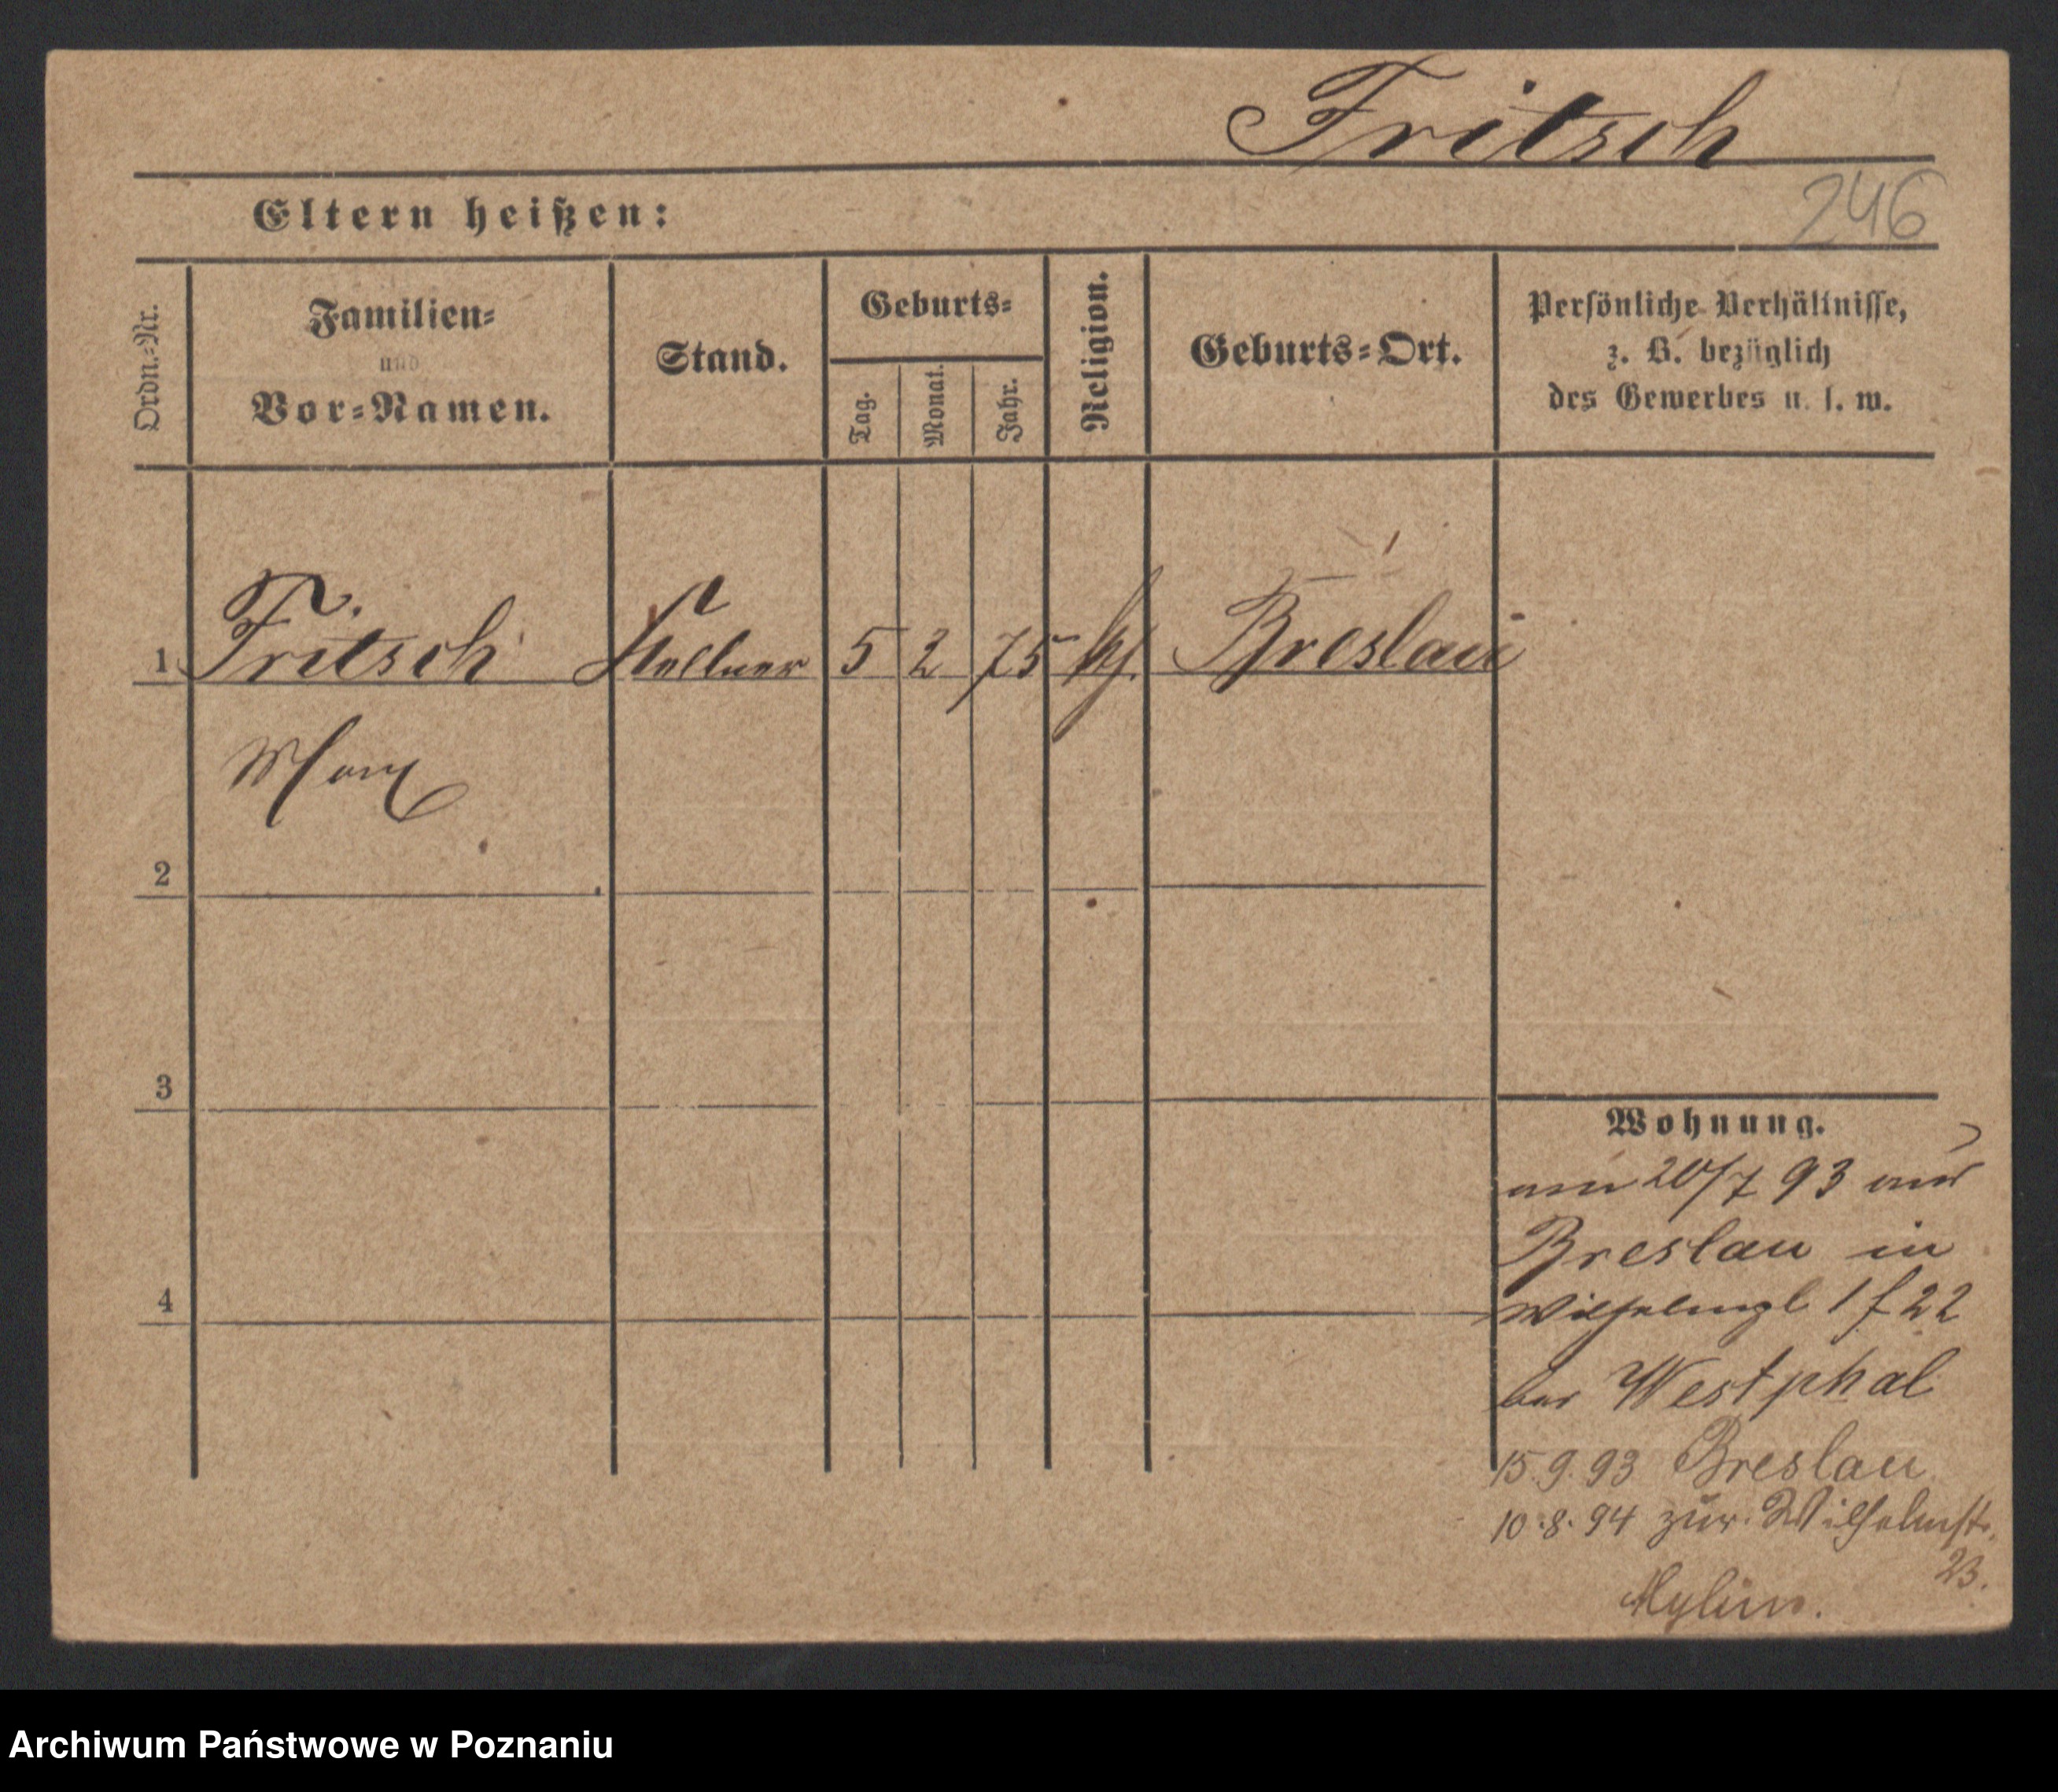 Fritsch
246
Eltern heißen:
Ordn.=Nr.
Familien=
und
Vor=Namen.
Stand.
Geburts=
Tag.
Monat.
Jahr.
Religion.
Geburts=Ort.
Persönliche Verhältnisse,
z. B. bezüglich
des Gewerbes u. s. w.
1 Fritsch Kellner 5 2 75 kf. Breslau
Max
2
3
4
Wohnung.
am 20/7 93 aus
Breslau in
Wilhelmpl 1 f 22
bei Westphal
15.9.93 Breslau
10.8.94 zur. Wilhelmstr.
23.
Mylius.
Archiwum Państwowe w Poznaniu